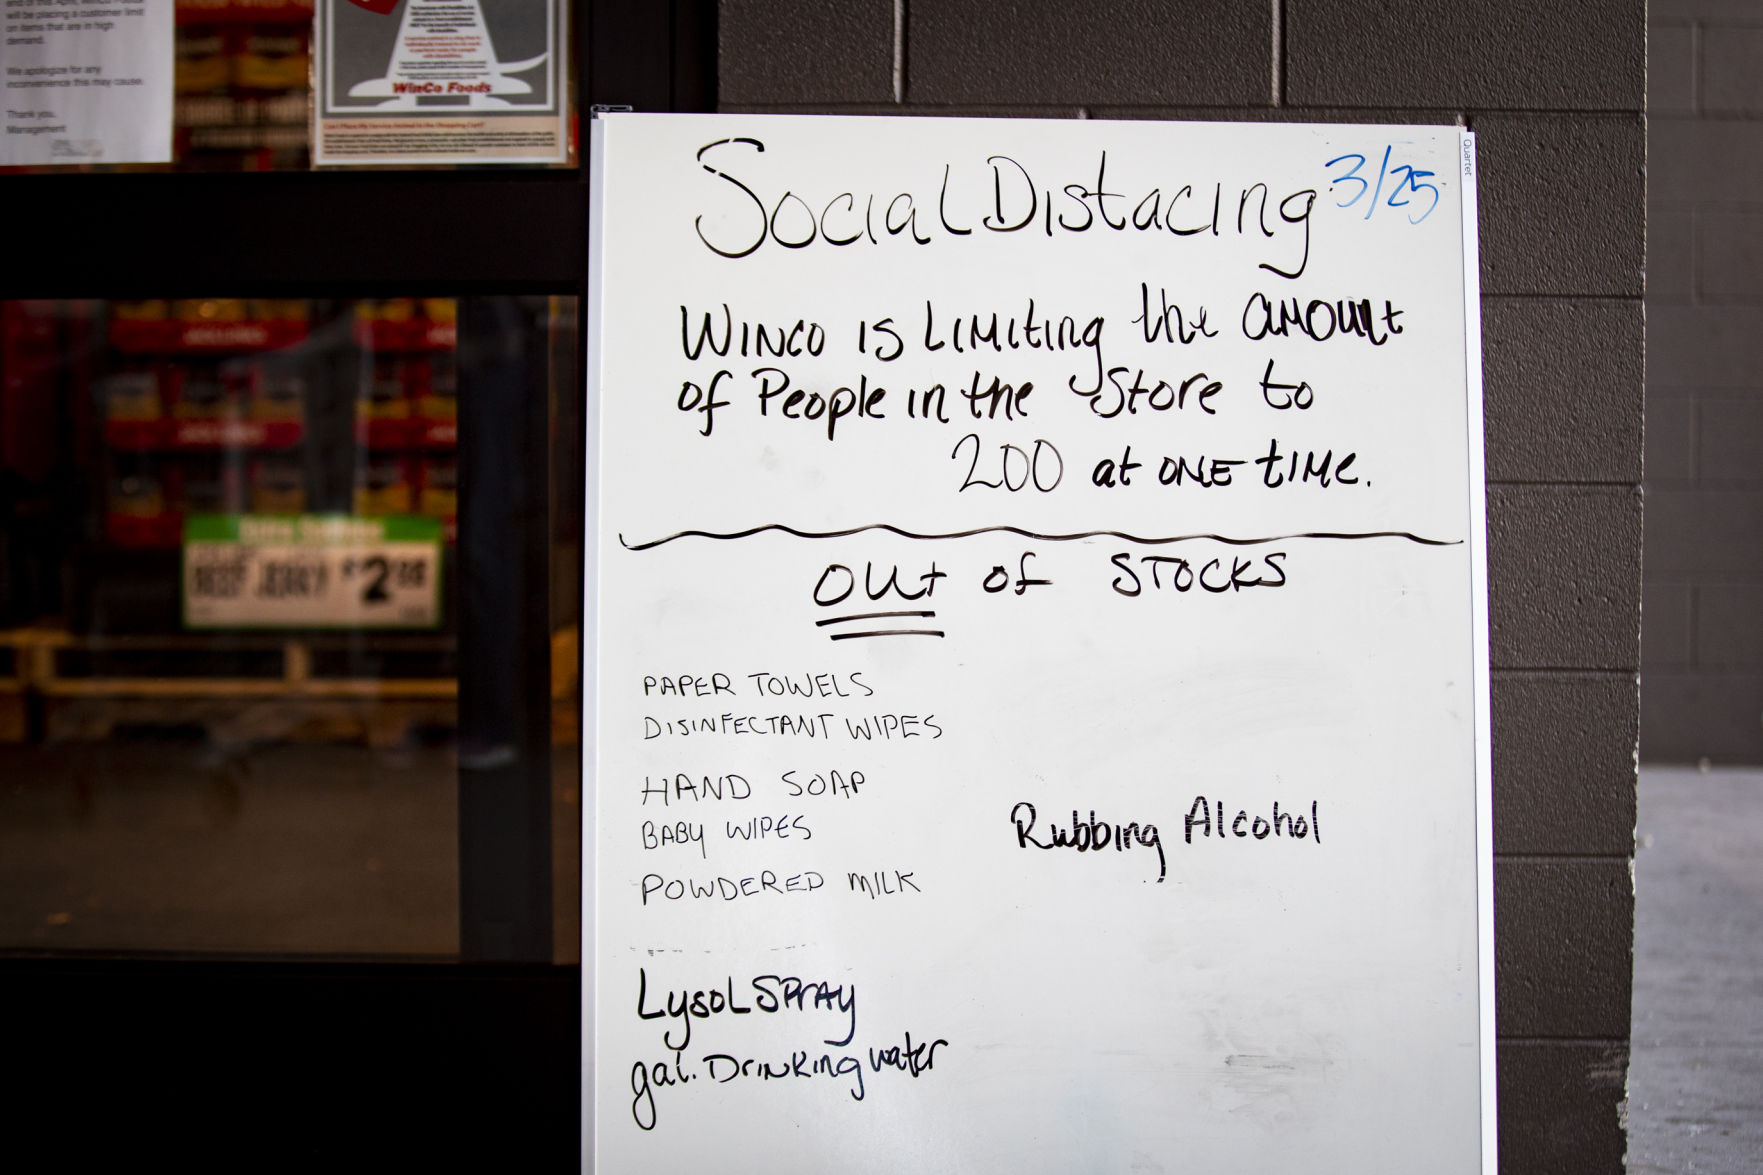 will be placing a customer limit
on items that are in high
demand.
We apologize for any
inconvenience this may cause.
Thank you,
Management
WinCo Foods
Can I Place My Service Animal in the Shopping Cart?
BEEF JERKY $2
Quartet
Social Distacing 3/25
WINCO IS LIMITING the AMOUNT
of People in the Store to
200 at ONE TIME.
OUT of STOCKS
PAPER TOWELS
DISINFECTANT WIPES
HAND SOAP
BABY WIPES
Rubbing Alcohol
POWDERED MILK
LYSOL SPRAY
gal. Drinking water